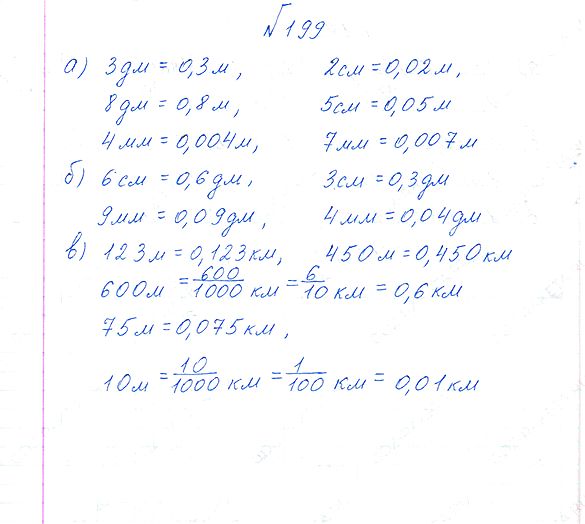 №199
а) 3дм = 0,3м, 2см = 0,02м,
8дм = 0,8м, 5см = 0,05м
4мм = 0,004м, 7мм = 0,007м
б) 6см = 0,6дм, 3см = 0,3дм
9мм = 0,09дм, 4мм = 0,04дм
в) 123м = 0,123км, 450м = 0,450км
600м = 600/1000 км = 6/10 км = 0,6км
75м = 0,075км,
10м = 10/1000 км = 1/100 км = 0,01км